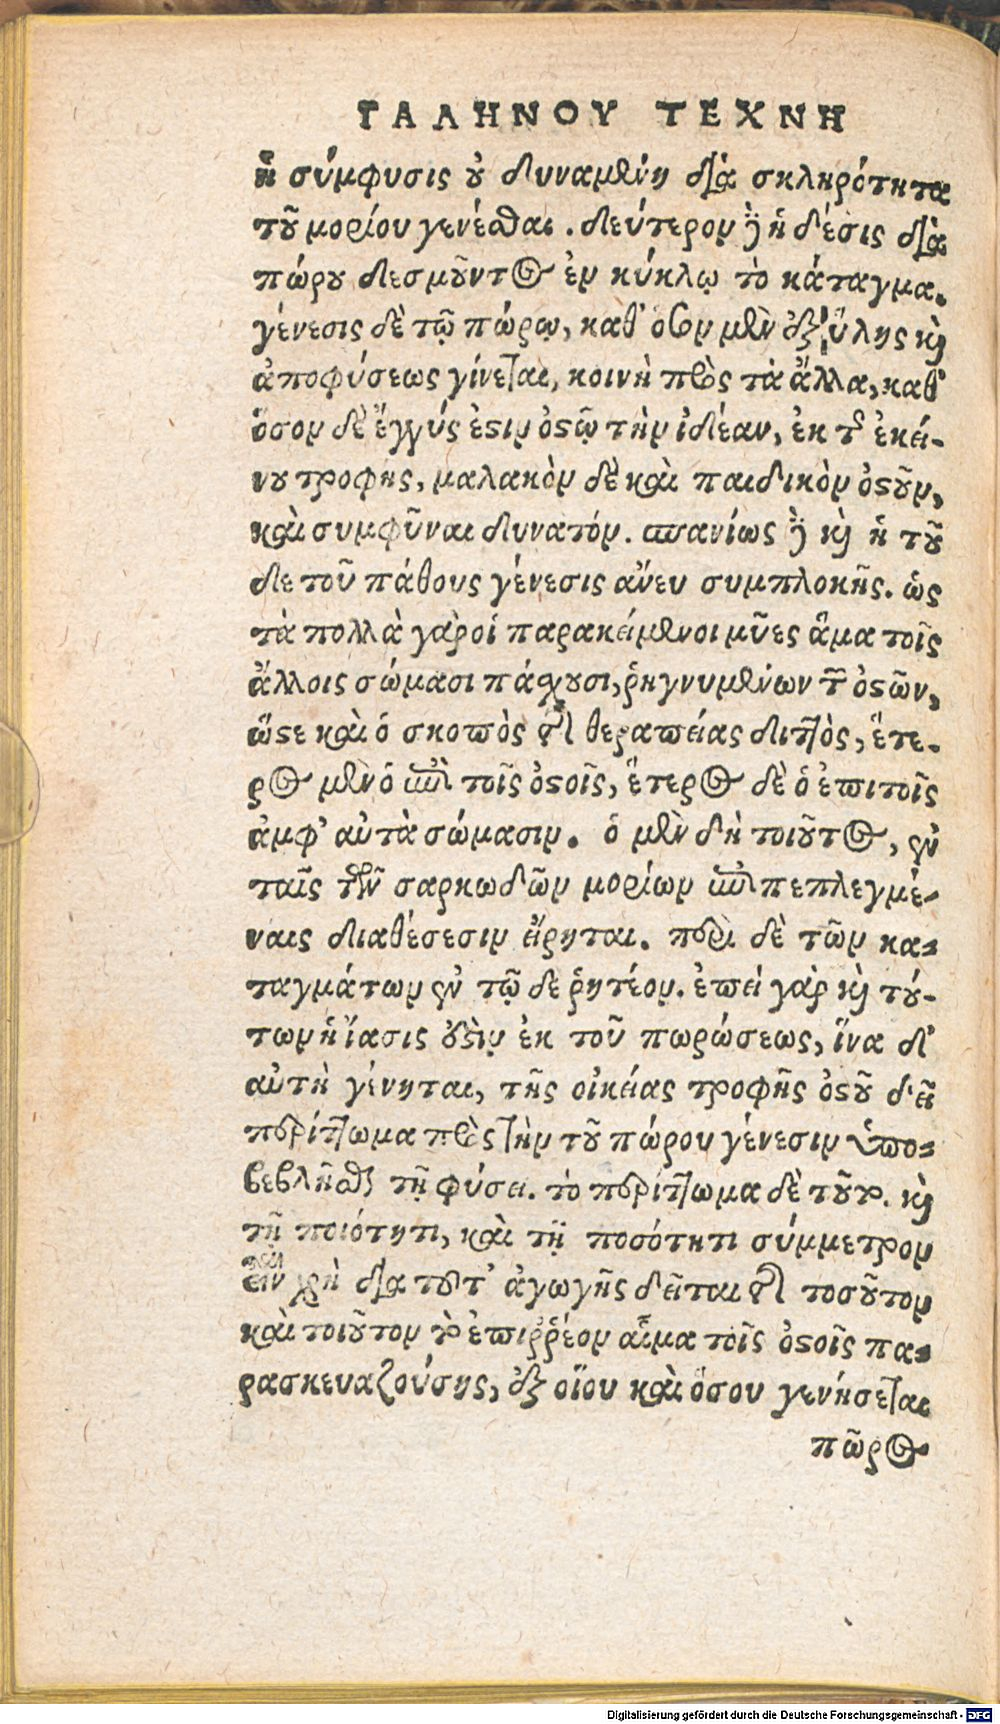 ΓΑΛΗΝΟΥ ΤΕΧΝΗ
ἡ σύμφυσις οὐ δυναμένη διὰ σκληρότητα
τοῦ μορίου γενέσθαι. δεύτερον δὲ ἡ δέσις διὰ
πώρου δεσμοῦντος ἐν κύκλῳ τὸ κάταγμα.
γένεσις δὲ τῷ πώρῳ, καθ' ὅσον μὲν ἐξ ὕλης καὶ
ἀποφύσεως γίνεται, κοινὴ πρὸς τὰ ἄλλα, καθ'
ὅσον δὲ ἐγγύς ἐστιν ὀστῷ τὴν ἰδέαν, ἐκ τῆς ἐκεί-
νου τροφῆς, μαλακὸν δὲ καὶ παιδικὸν ὀστοῦν,
καὶ συμφῦναι δυνατόν. σπανίως δὲ καὶ ἡ τοῦ
δε τοῦ πάθους γένεσις ἄνευ συμπλοκῆς. ὡς
τὰ πολλὰ γὰρ οἱ παρακείμενοι μῦες ἅμα τοῖς
ἄλλοις σώμασι πάσχουσι, ῥηγνυμένων τῶν ὀστῶν,
ὥστε καὶ ὁ σκοπὸς τῆς θεραπείας διττὸς, ἕτε-
ρος μὲν ὁ ἐπὶ τοῖς ὀστοῖς, ἕτερος δὲ ὁ ἐπὶ τοῖς
ἀμφ' αὐτὰ σώμασιν. ὁ μὲν δὴ τοιοῦτος, ἐν
ταῖς τῶν σαρκωδῶν μορίων ἐπιπεπλεγμέ-
ναις διαθέσεσιν εἴρηται. περὶ δὲ τῶν κα-
ταγμάτων ἐν τῷ δε ῥητέον. ἐπεὶ γὰρ καὶ τού-
των ἡ ἴασις οὖσιν ἐκ τοῦ πωρώσεως, ἵνα δ'
αὐτὴ γένηται, τῆς οἰκείας τροφῆς ὀστοῦ δεῖ
περίττωμα πρὸς τὴν τοῦ πώρου γένεσιν ὑπο-
βεβλῆσθαι τῇ φύσει. τὸ περίττωμα δὲ τοῦτο. καὶ
τῇ ποιότητι, καὶ τῇ ποσότητι σύμμετρον
εἶναι χρὴ διὰ τοῦτ' ἀγωγῆς δεῖται τῆς τοσοῦτον
καὶ τοιοῦτον τὸ ἐπιῤῥέον αἷμα τοῖς ὀστοῖς πα-
ρασκευαζούσης, ἐξ οἵου καὶ ὅσου γενήσεται
πῶρος
Digitalisierung gefördert durch die Deutsche Forschungsgemeinschaft - DFG